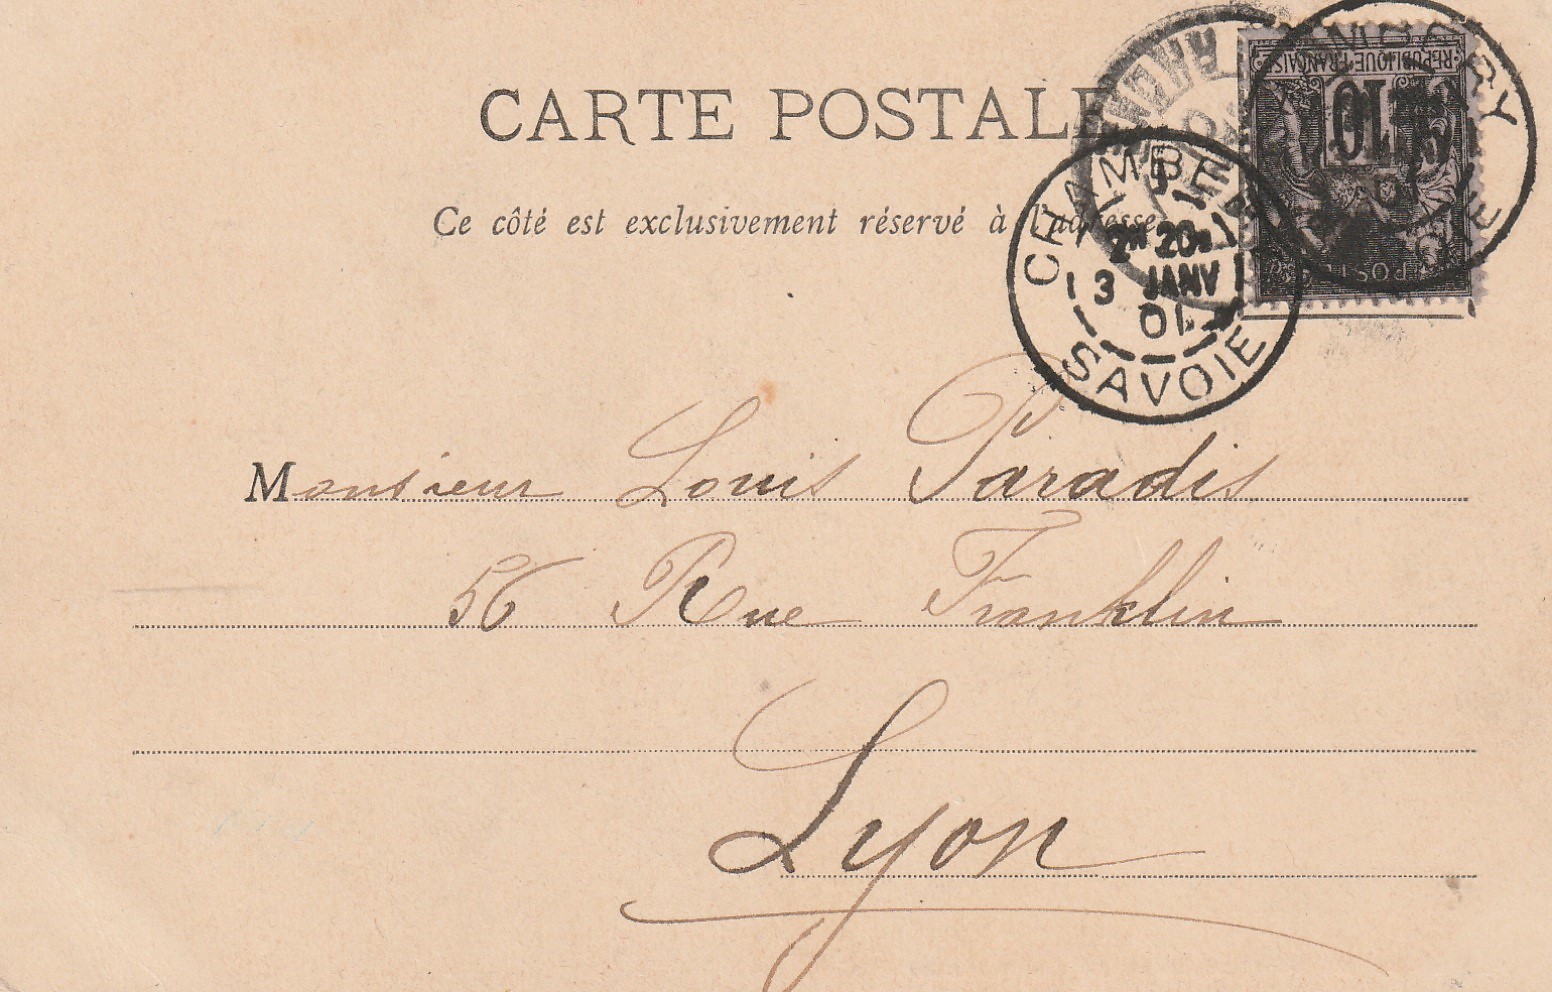 CARTE POSTALE
Ce côté est exclusivement réservé à l'adresse
RÉPUBLIQUE FRANÇAISE
10
CHAMBERY
2E 20
3 JANV
01
SAVOIE
Monsieur Louis Paradis
56 Rue Franklin
Lyon